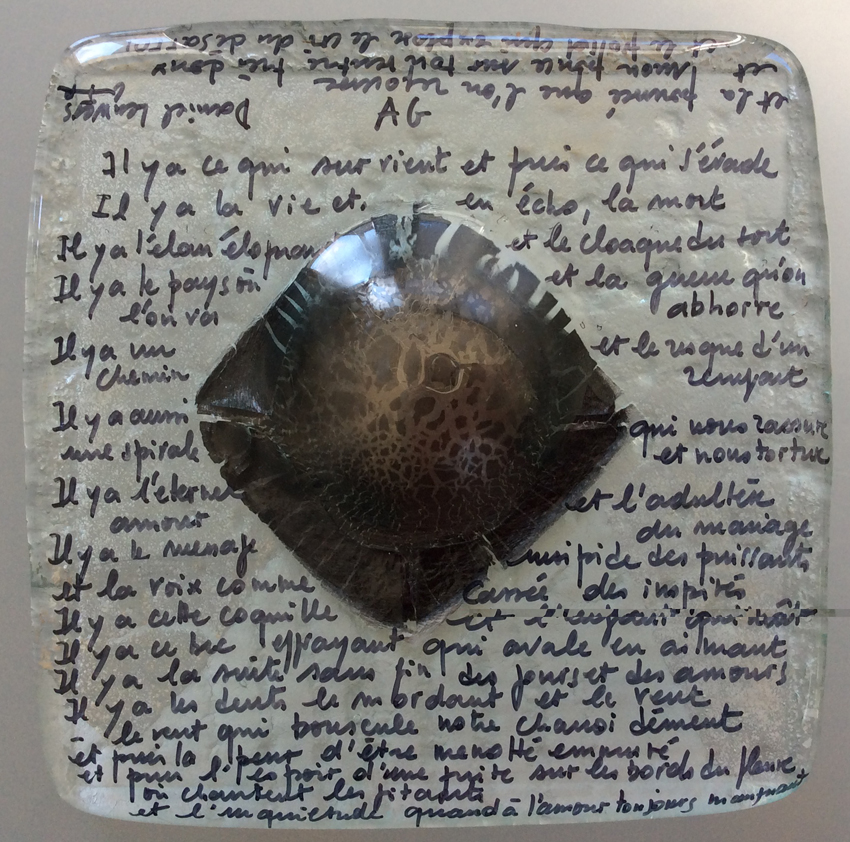 AG
Il y a ce qui survient et puis ce qui s'évade
Il y a la vie et en écho, la mort
Il y a l'élan et le cloaque du sort
Il y a le pays où et la gueuse qu'on
l'on va abhorre
Il y a un et le risque d'un
chemin rempart
Il y a aussi qui nous rassure
une spirale et nous torture
Il y a l'éternel et l'adultère
amour du mariage
Il y a le insipide des puissants
et la voix comme cassée des
Il y a cette coquille et
Il y a ce bec effrayant qui avale en aimant
Il y a la suite sans fin des jours et des amours
Il y a les dents le mordant et le vent
le vent qui bouscule notre dément
et puis la peur d'être menotté emmuré
et puis l'espoir d'une fuite sur les bords du fleuve
où chantent les
et l'inquiétude quand à l'amour toujours manquant
et la pensée que l'on
et sur tout
et le qui explose le cri du
Daniel Leuwers